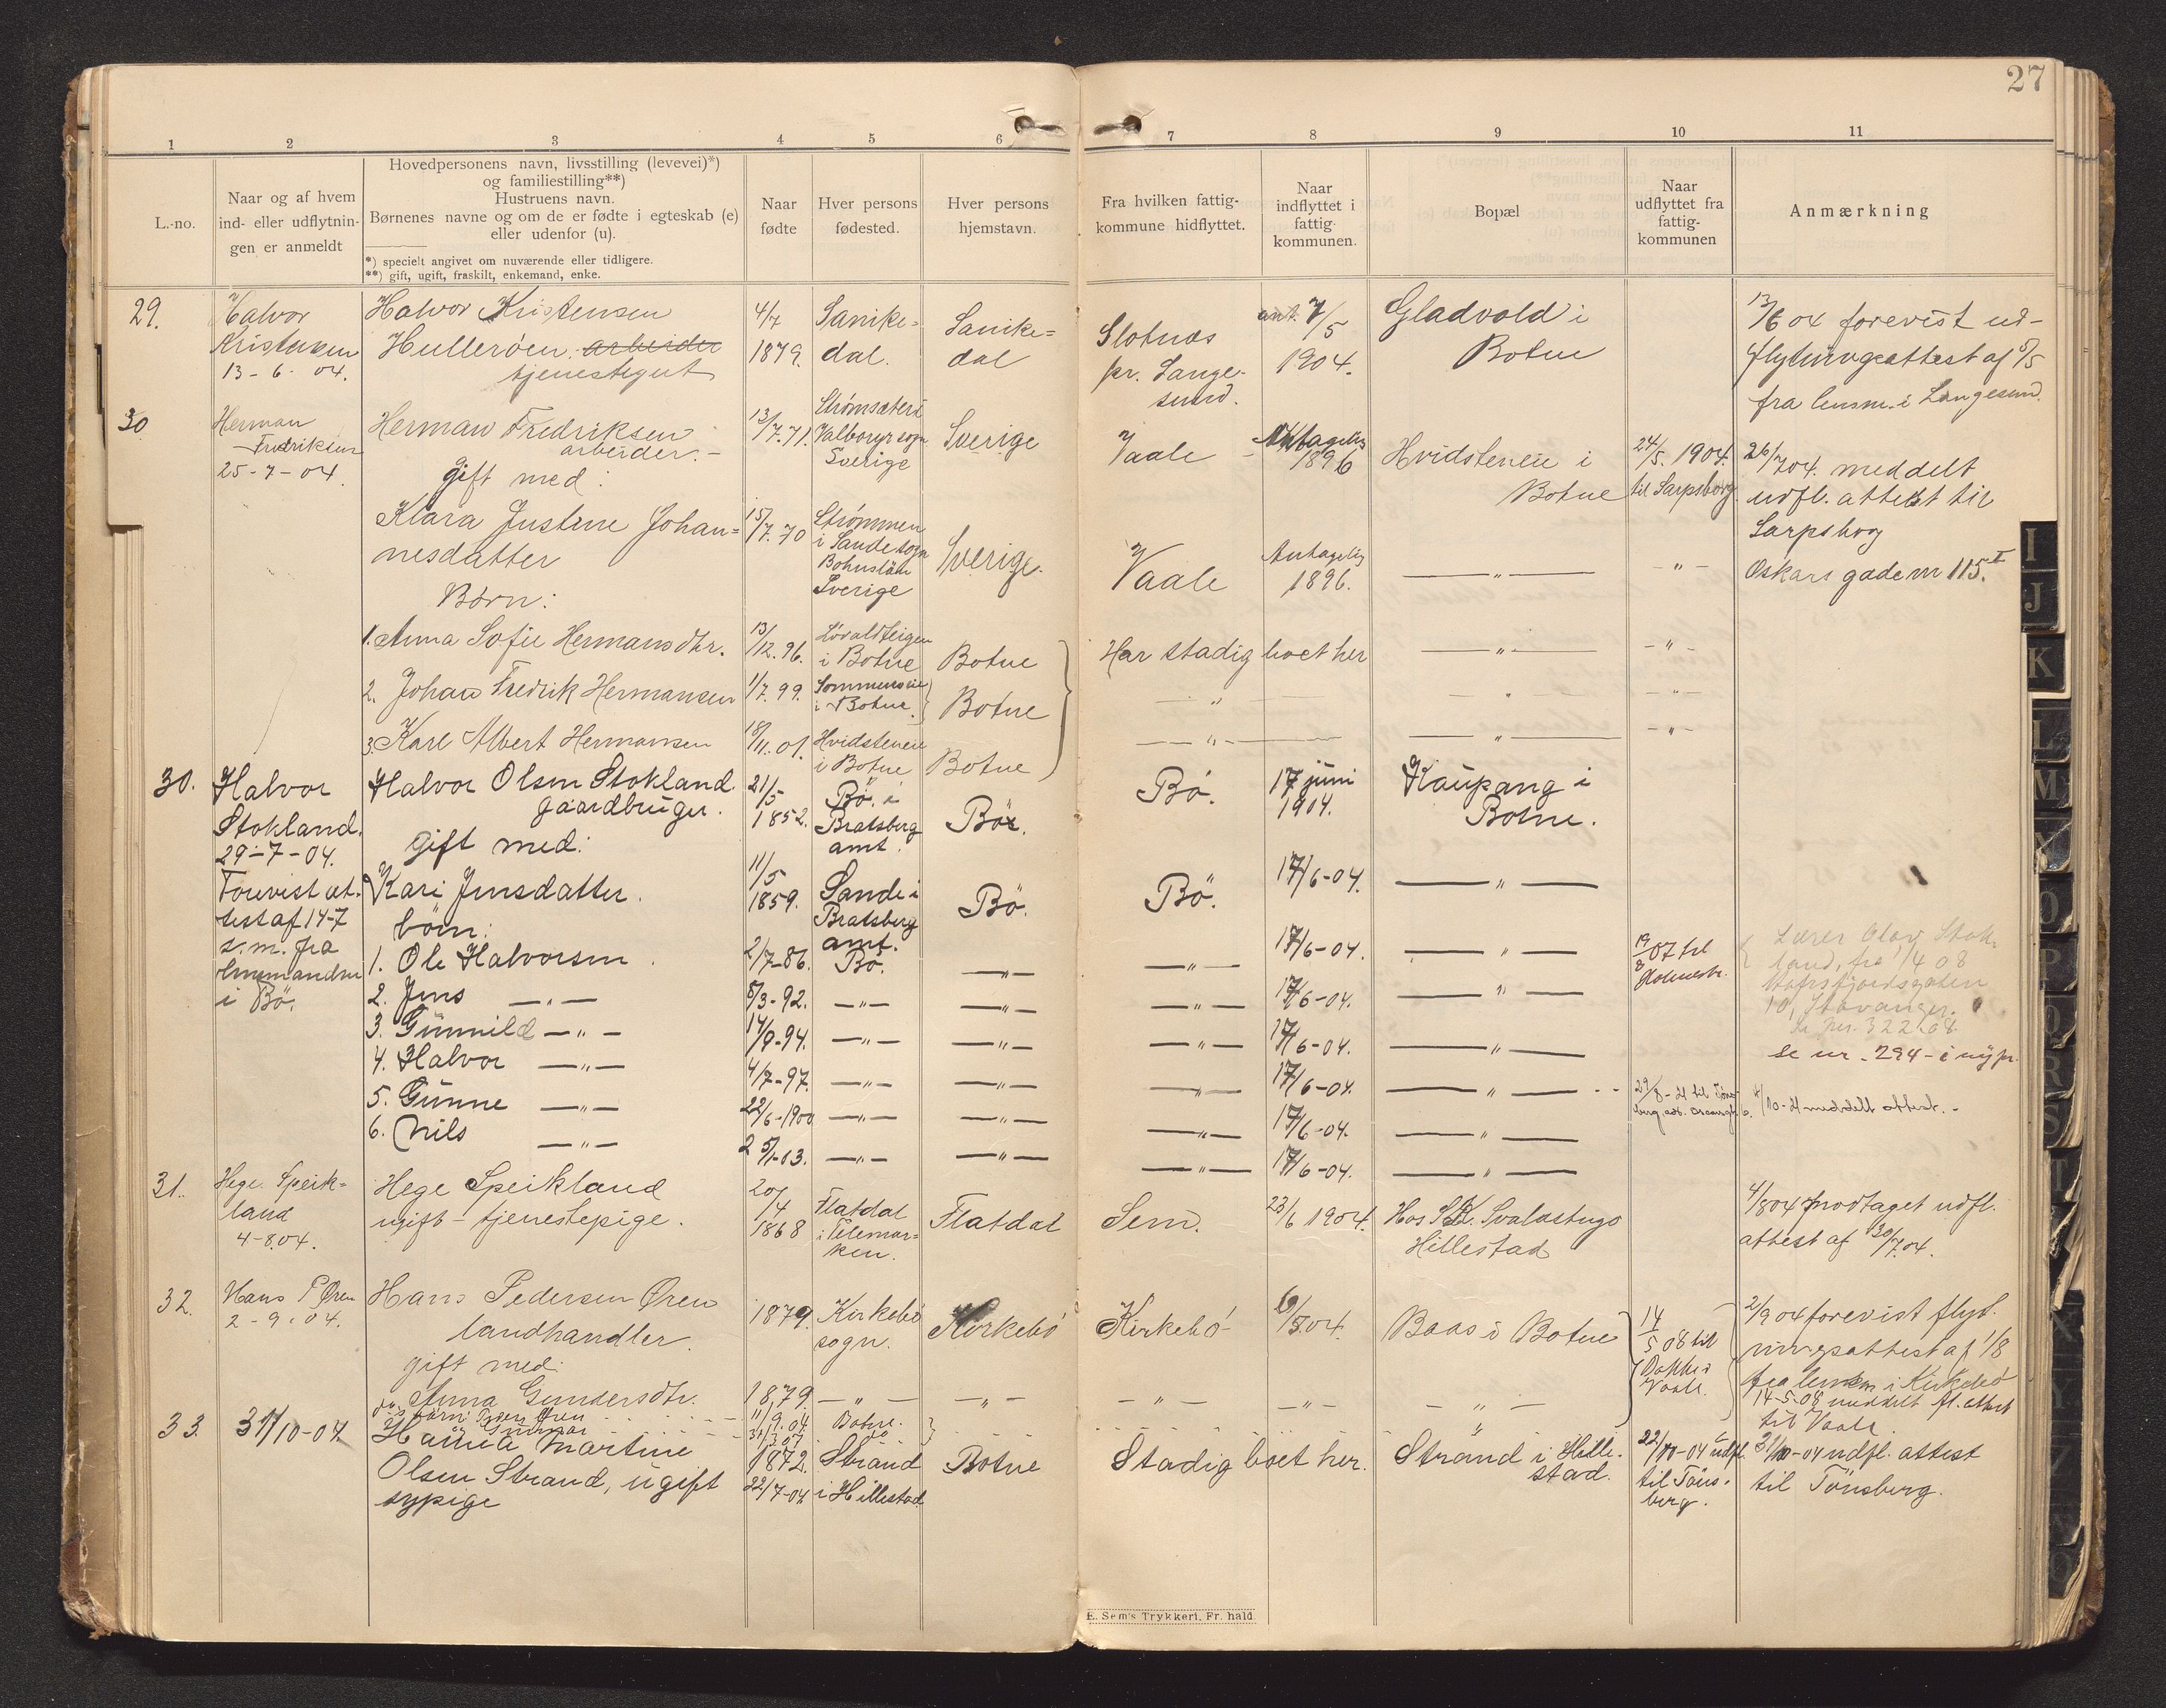 27
1
2
3
4
5
6
7
8
9
10
11
L.-no.
Naar og af hvem
ind- eller udflytnin-
gen er anmeldt
Hovedpersonens navn, livsstilling (levevei)*)
og familiestilling**)
Hustruens navn.
Børnenes navne og om de er fødte i egteskab (e)
eller udenfor (u).
*) specielt angivet om nuværende eller tidligere.
**) gift, ugift, fraskilt, enkemand, enke.
Naar
fødte
Hver persons
fødested.
Hver persons
hjemstavn.
Fra hvilken fattig-
kommune hidflyttet.
Naar
indflyttet i
fattig-
kommunen.
Bopæl
Naar
udflyttet fra
fattig-
kommunen
Anmærkning
29.
Halvor
Kristensen
13-6-04.
Halvor Kristensen
Hullerøen. arbeider
tjenestegut
4/7
1879.
Sanike-
dal.
Sanike-
dal
Slotnæs
pr. Lange-
sund.
ant. 7/5
1904.
Gladvold i
Botne
13/6 04 forevist ud-
flytningsattest af 5/5
fra lensm. i Langesund.
30
Herman
Fredriksen
25-7-04.
Herman Fredriksen
arbeider.-
gift med:
13/7.71.
Strømsæteri
Valboryr sogn
Sverige
Sverige
Vaale
Antagelig
1896
Hvidsteneie i
Botne
24/5. 1904.
til Sarpsborg.
26/7 04. meddelt
udfl. attest til
Sarpsborg
Oskars gade nr 115.I
Klara Justine Johan-
nesdatter
Børn:
15/7.70
Strømmen
i Sande sogn
Bohuslän
Sverige
Sverige.
Vaale
Antagelig
1896.
— " —
- " -
1. Anna Sofie Hermansdtr.
13/12.96.
Løvaldteigen
i Botne
Botne
Har stadig boet her
— " —
- " -
2. Johan Fredrik Hermansen
1/7.99.
Sommerseie
i Botne.
Botne
— " —
— " —
- " -
3. Karl Albert Hermansen
18/11.01.
Hvidsteneie
i Botne
Botne
— " —
— " —
- " -
30.
Halvor
Stokland.
29-7-04.
Forevist at-
test af 14-7
s.m. fra
lensmanden
i Bö.
Halvor Olsen Stokland.
gaardbruger.
gift med:
21/5
1852.
Bö. i
Bratsberg
amt.
Bö.
Bö.
17 juni
1904.
Kaupang i
Botne.
Kari Jensdatter.
börn:
11/5
1859.
Sande i
Bratsberg
amt.
Bö.
Bö.
17/6-04.
— " —
1. Ole Halvorsen.
2/7-86.
Bö.
— " —
— " —
17/6-04.
— " —
19/8 07 til
Holmestr.
Lærer Olav Stok-
land, fra 1/4 08
Hafrsfjordsgaten
10, Stavanger.
2. Jens — " —
5/3-92.
— " —
— " —
— " —
17/6-04.
— " —
3. Gunnild — " —
14/9-94.
— " —
— " —
— " —
17/6-04.
— " —
se nr. 294 - i ny pr.
4. Halvor — " —
4/7-97.
— " —
— " —
— " —
17/6-04.
— " —
29/8-21 til Töns-
4/10-21 meddelt attest.-
5. Gunne — " —
22/6-1900
— " —
— " —
— " —
17/6-04.
— " —
6. Nils — " —
25/1-03.
— " —
— " —
— " —
17/6-04.
— " —
31.
Hege Speik-
land
4-8 04.
Hege Speikland
ugift - tjenestepige.
20/4
1868
Flatdal
i Telemar-
ken.
Flatdal
Sem.
23/6 1904.
Hos S.K. Svalastugo
Hillestad
4/8 04 modtaget udfl.
attest af 30/7.04.
32.
Hans P Øren
2-9-04.
Hans Pedersen Øren
landhandler.
gift med:
1879.
Kirkebø
sogn.
Kirkebø
Kirkebø
Baas i Botne
14/5 08 til
Vaale.
2/9 04 forevist flyt-
ningsattest af 1/8
fra lensm. i Kirkebø
14-5-08 meddelt fl. attest
til Vaale.
Anna Gundersdtr.
1879.
— " —
— " —
— " —
— " —
— " —
11/9.04
Botne.
33.
31/10-04.
Hanna Martine
Olsen Strand, ugift
sypige
1872.
22/7-04
Strand
i Hillestad
Botne
Stadig boet her.
Strand i Hille-
stad.
22/10-04 udfl.
til Töns-
berg.
31/10-04 udfl. attest
til Tönsberg.
E. Sem's Trykkeri, Fr. hald.
I
J
K
L
M
O
P
Q
R
S
T
X
Y
Z